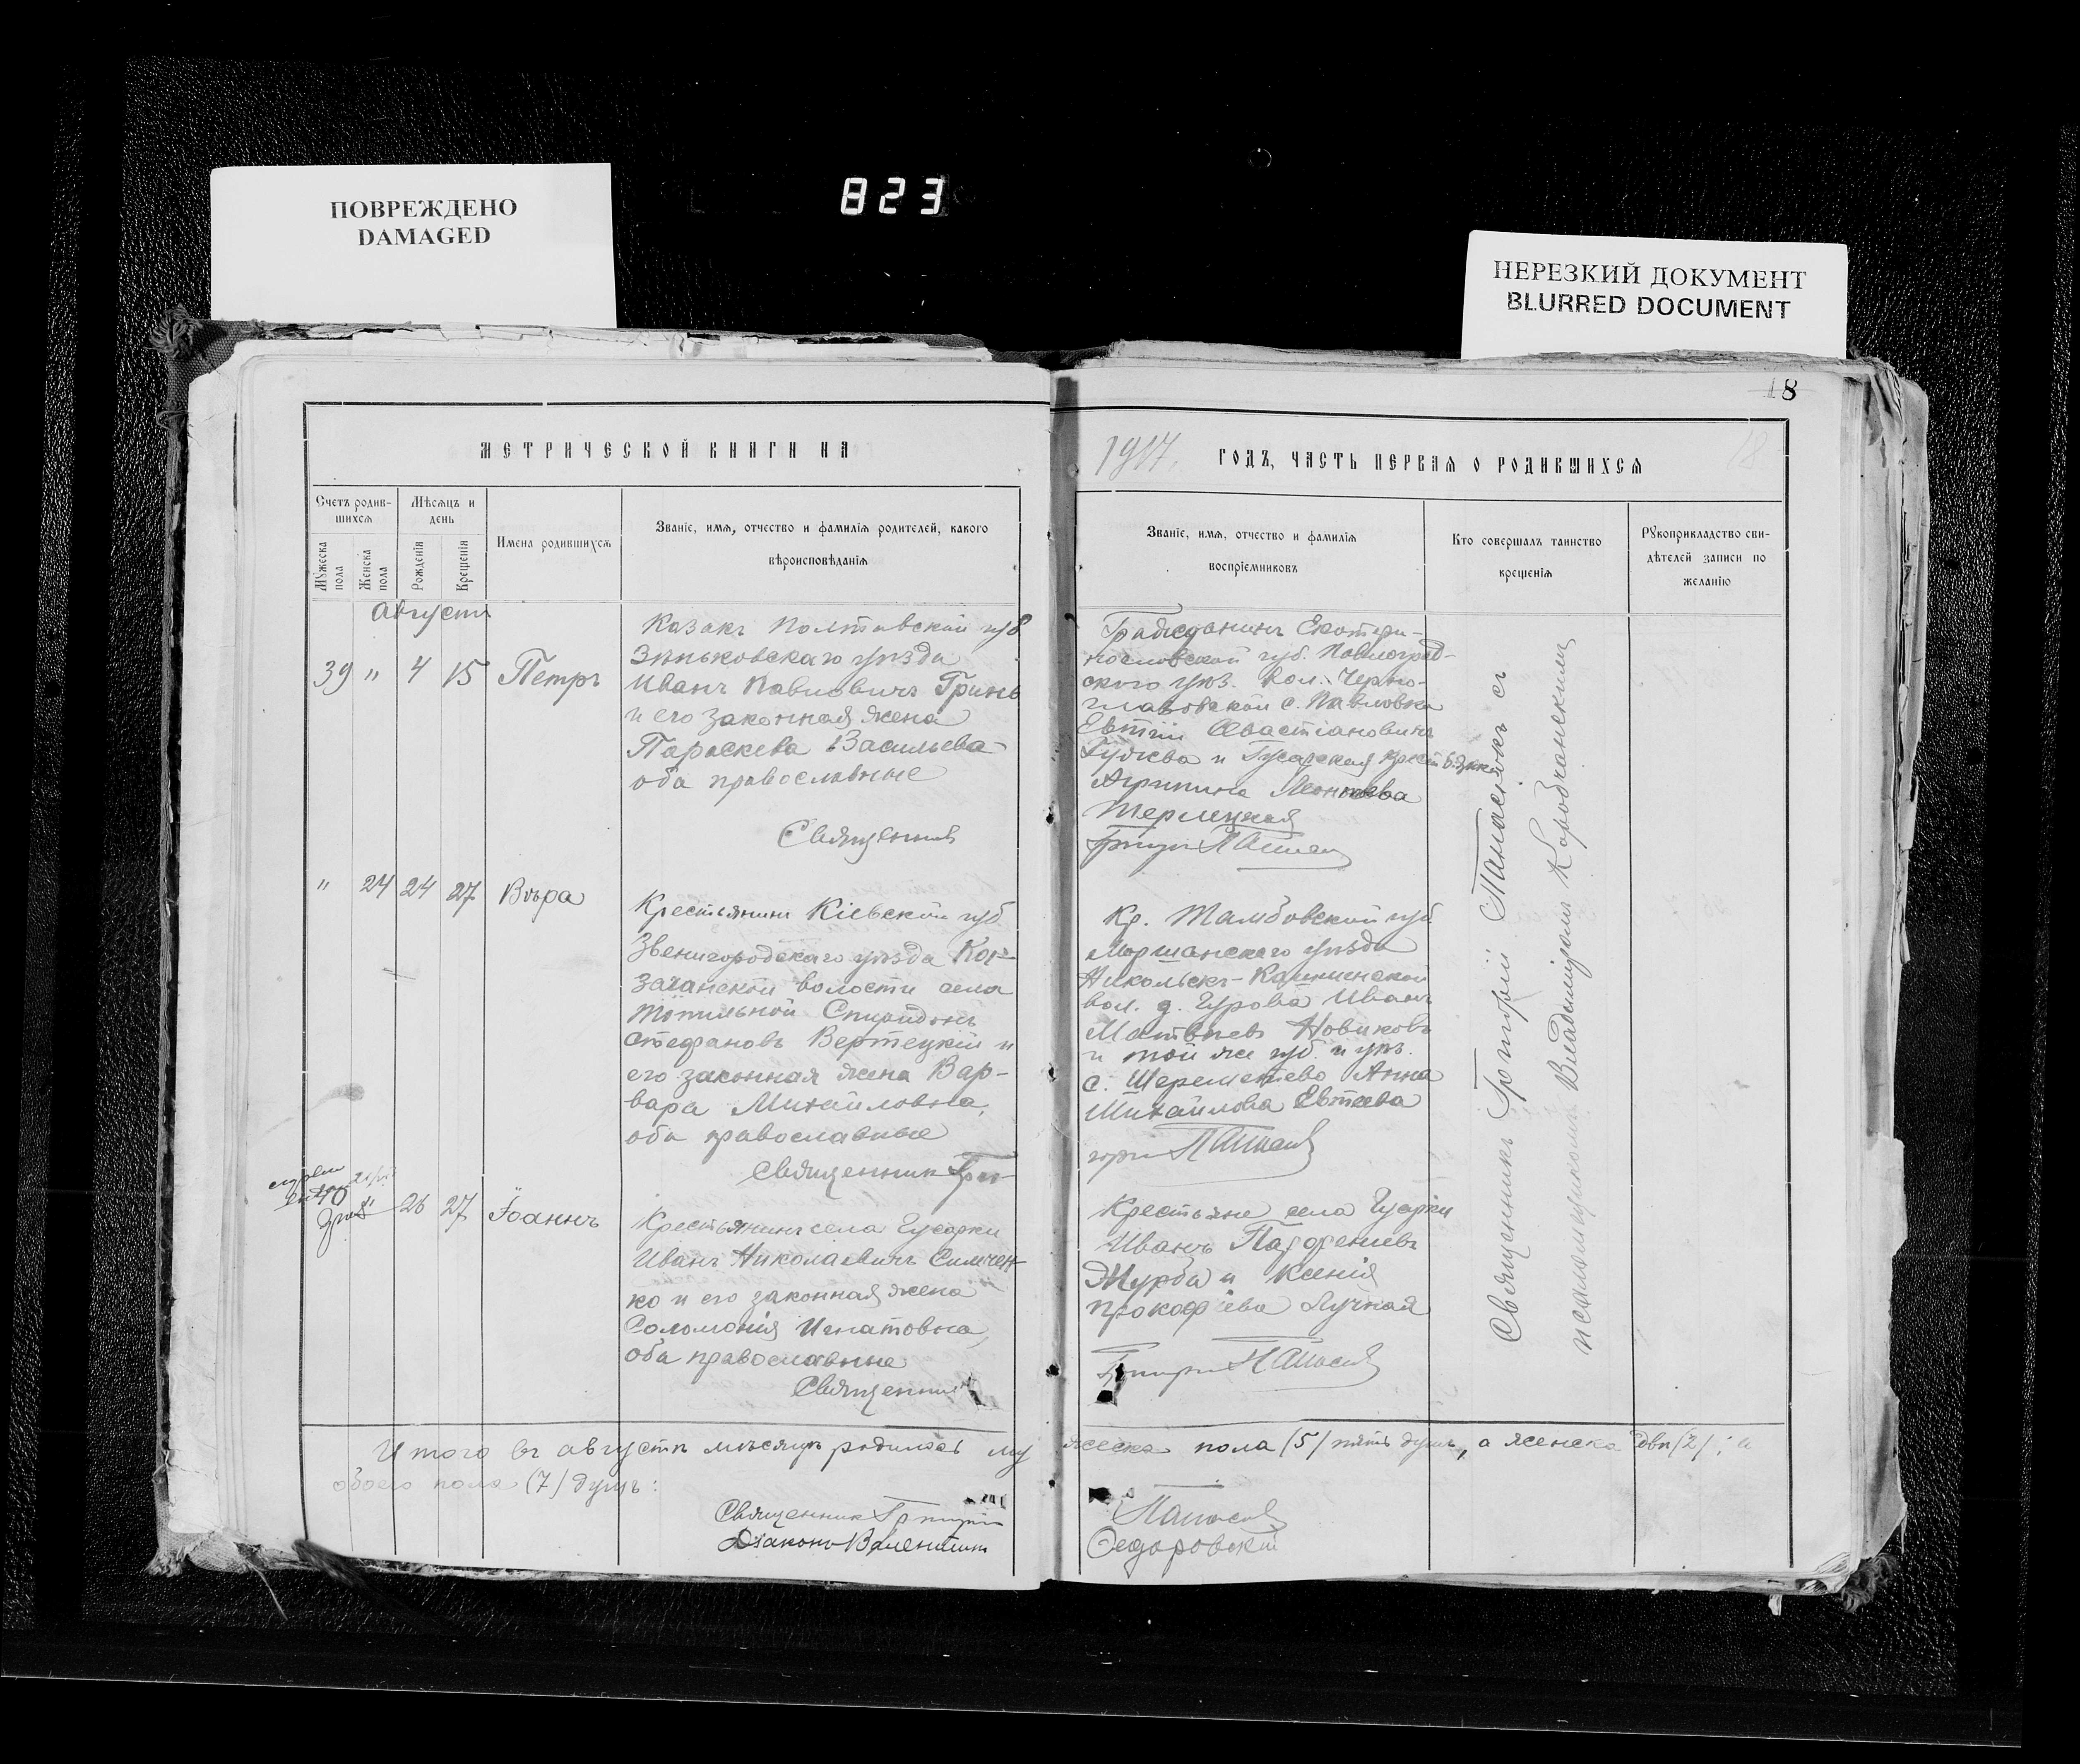 ПОВРЕЖДЕНО
DAMAGED
823
НЕРЕЗКИЙ ДОКУМЕНТ
BLURRED DOCUMENT
18
МЕТРИЧЕСКОЙ КНИГИ НА
1917. ГОДЪ, ЧАСТЬ ПЕРВАЯ О РОДИВШИХСЯ
18
Счетъ родив-
шихся
Мѣсяцъ и
день
Мужеска
пола
Женска
пола
Рожденія
Крещенія
Имена родившихся
Званіе, имя, отчество и фамилія родителей, какого
вѣроисповѣданія
Званіе, имя, отчество и фамилія
воспріемниковъ
Кто совершалъ таинство
крещенія
Рукоприкладство сви-
дѣтелей записи по
желанію
Августъ
39 " 4 15 Петръ
Казакъ Полтавской губ
Зѣньковскаго уѣзда
Иванъ Павловичъ Гринь
и его законная жена
Параскева Васильева
оба православные
Священникъ
Гражданинъ Екатери-
нославской губ. Павлоград-
скаго уѣз. вол. Черно-
глазовской с. Павловка
Евтіи
и Гусарская крестьянка
Агрипина Леонтьева
Терлецкая
Григорій Панасенко
" 24 24 27 Вѣра
Крестьянинъ Кіевской губ
Звенигородскаго уѣзда Коз-
зачанской волости села
Топильной Спиридонъ
Стефановъ Вертецкій и
его законная жена Вар-
вара Михайловна,
оба православные
Священникъ Гри-
Кр. Тамбовской губ
Моршанскаго уѣзда
Никольско-Кашминской
вол. д. Гурова Иванъ
Матвѣевъ Новиковъ
и той же губ. и уѣз.
с. Шереметево Анна
Михайлова Евтеева
горій
40 " 26 27 Іоаннъ
Крестьянинъ села Гусарки
Иванъ Николаевичъ Симчен-
ко и его законная жена
Соломонія Игнатовна,
оба православные
Священникъ
Крестьяне села Гусарки
Иванъ Парфеніевъ
Журба и Ксенія
Прокофіева Лучная
Григорій
Священникъ Григорій съ
псаломщикомъ Владиміромъ
Итого въ августѣ мѣсяцѣ родилось мужеска пола (5) пять душъ, а женска двѣ (2); а
обоего пола (7) душъ:
Священникъ Григорій
Діаконъ Валентинъ Федоровскій